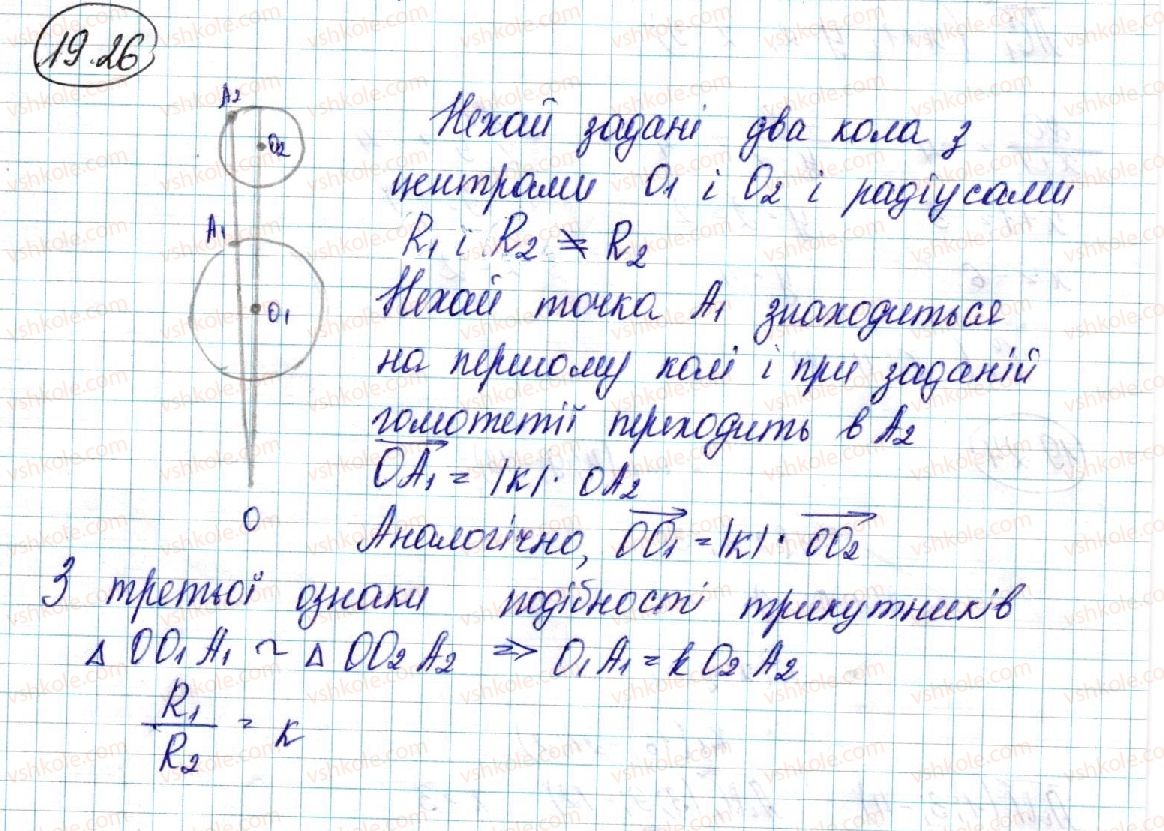 19.26
A2
O2
A1
O1
O
Нехай задані два кола з
центрами O1 і O2 і радіусами
R1 і R2 ≠ R2
Нехай точка A1 знаходиться
на першому колі і при заданій
гомотетії переходить в A2
OA1 = |k| · OA2
Аналогічно, OO1 = |k| · OO2
З третьої ознаки подібності трикутників
△ OO1A1 ~ △ OO2A2 => O1A1 = k O2A2
R1/R2 = k
vshkole.com